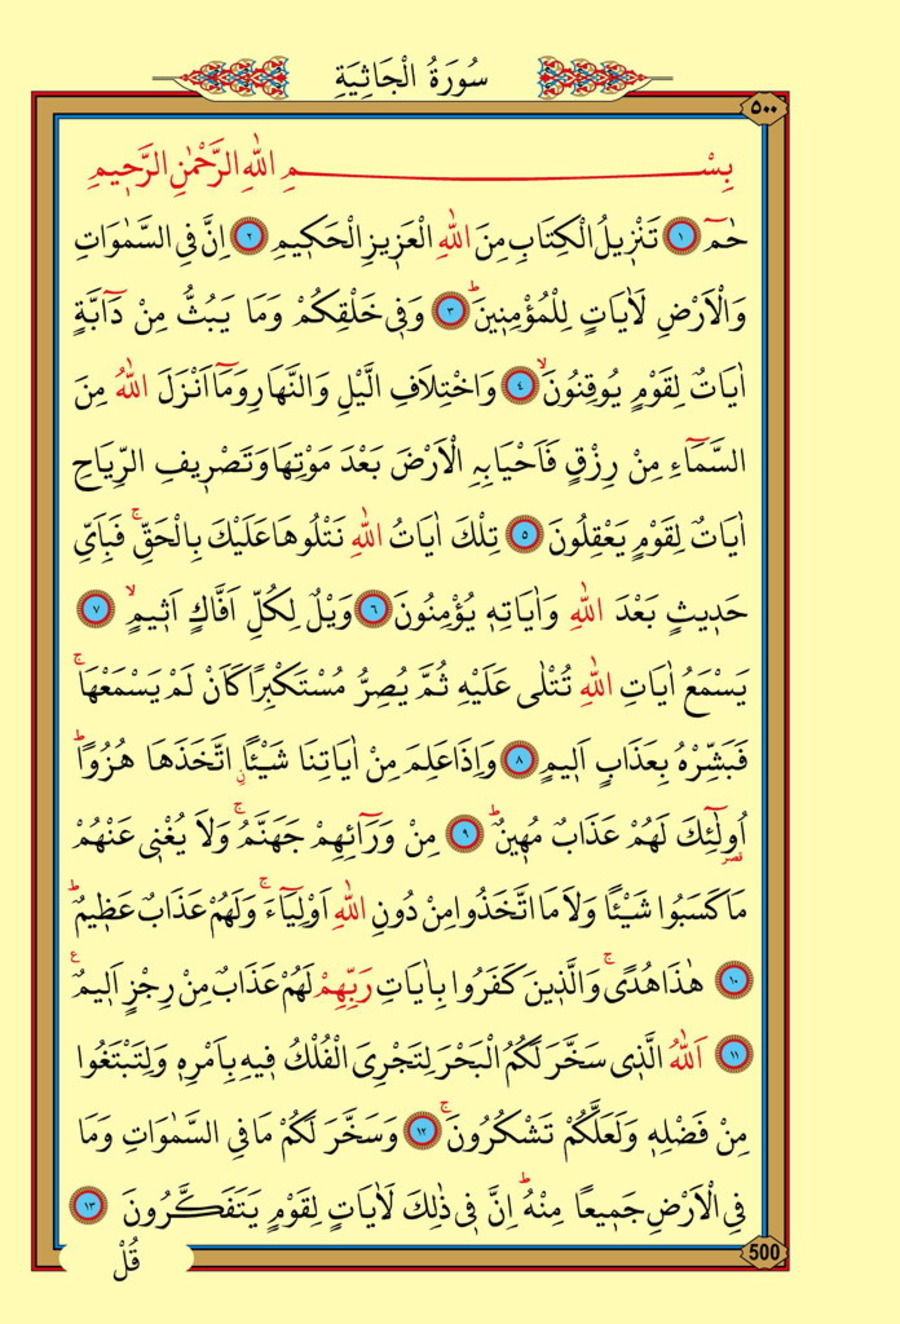 سُورَةُ الْجَاثِيَةِ
٥٠٠
بِسْمِ اللّٰهِ الرَّحْمٰنِ الرَّح۪يمِ
حٰمٓ ١ تَنْز۪يلُ الْكِتَابِ مِنَ اللّٰهِ الْعَز۪يزِ الْحَك۪يمِ ٢ اِنَّ فِي السَّمٰوَاتِ
وَالْاَرْضِ لَاٰيَاتٍ لِلْمُؤْمِن۪ينَۜ ٣ وَف۪ي خَلْقِكُمْ وَمَا يَبُثُّ مِنْ دَٓابَّةٍ
اٰيَاتٌ لِقَوْمٍ يُوقِنُونَۙ ٤ وَاخْتِلَافِ الَّيْلِ وَالنَّهَارِ وَمَٓا اَنْزَلَ اللّٰهُ مِنَ
السَّمَٓاءِ مِنْ رِزْقٍ فَاَحْيَا بِهِ الْاَرْضَ بَعْدَ مَوْتِهَا وَتَصْر۪يفِ الرِّيَاحِ
اٰيَاتٌ لِقَوْمٍ يَعْقِلُونَ ٥ تِلْكَ اٰيَاتُ اللّٰهِ نَتْلُوهَا عَلَيْكَ بِالْحَقِّۚ فَبِاَيِّ
حَد۪يثٍ بَعْدَ اللّٰهِ وَاٰيَاتِه۪ يُؤْمِنُونَ ٦ وَيْلٌ لِكُلِّ اَفَّاكٍ اَث۪يمٍۙ ٧
يَسْمَعُ اٰيَاتِ اللّٰهِ تُتْلٰى عَلَيْهِ ثُمَّ يُصِرُّ مُسْتَكْبِرًا كَاَنْ لَمْ يَسْمَعْهَاۚ
فَبَشِّرْهُ بِعَذَابٍ اَل۪يمٍ ٨ وَاِذَا عَلِمَ مِنْ اٰيَاتِنَا شَيْـًٔا اتَّخَذَهَا هُزُوًاۜ
اُو۬لٰٓئِكَ لَهُمْ عَذَابٌ مُه۪ينٌۜ ٩ مِنْ وَرَٓائِهِمْ جَهَنَّمُۚ وَلَا يُغْن۪ي عَنْهُمْ
مَا كَسَبُوا شَيْـًٔا وَلَا مَا اتَّخَذُوا مِنْ دُونِ اللّٰهِ اَوْلِيَٓاءَۚ وَلَهُمْ عَذَابٌ عَظ۪يمٌۜ
١٠ هٰذَا هُدًىۚ وَالَّذ۪ينَ كَفَرُوا بِاٰيَاتِ رَبِّهِمْ لَهُمْ عَذَابٌ مِنْ رِجْزٍ اَل۪يمٌ۟
١١ اَللّٰهُ الَّذ۪ي سَخَّرَ لَكُمُ الْبَحْرَ لِتَجْرِيَ الْفُلْكُ ف۪يهِ بِاَمْرِه۪ وَلِتَبْتَغُوا
مِنْ فَضْلِه۪ وَلَعَلَّكُمْ تَشْكُرُونَۚ ١٢ وَسَخَّرَ لَكُمْ مَا فِي السَّمٰوَاتِ وَمَا
فِي الْاَرْضِ جَم۪يعًا مِنْهُۜ اِنَّ ف۪ي ذٰلِكَ لَاٰيَاتٍ لِقَوْمٍ يَتَفَكَّرُونَ ١٣
500
قُلْ